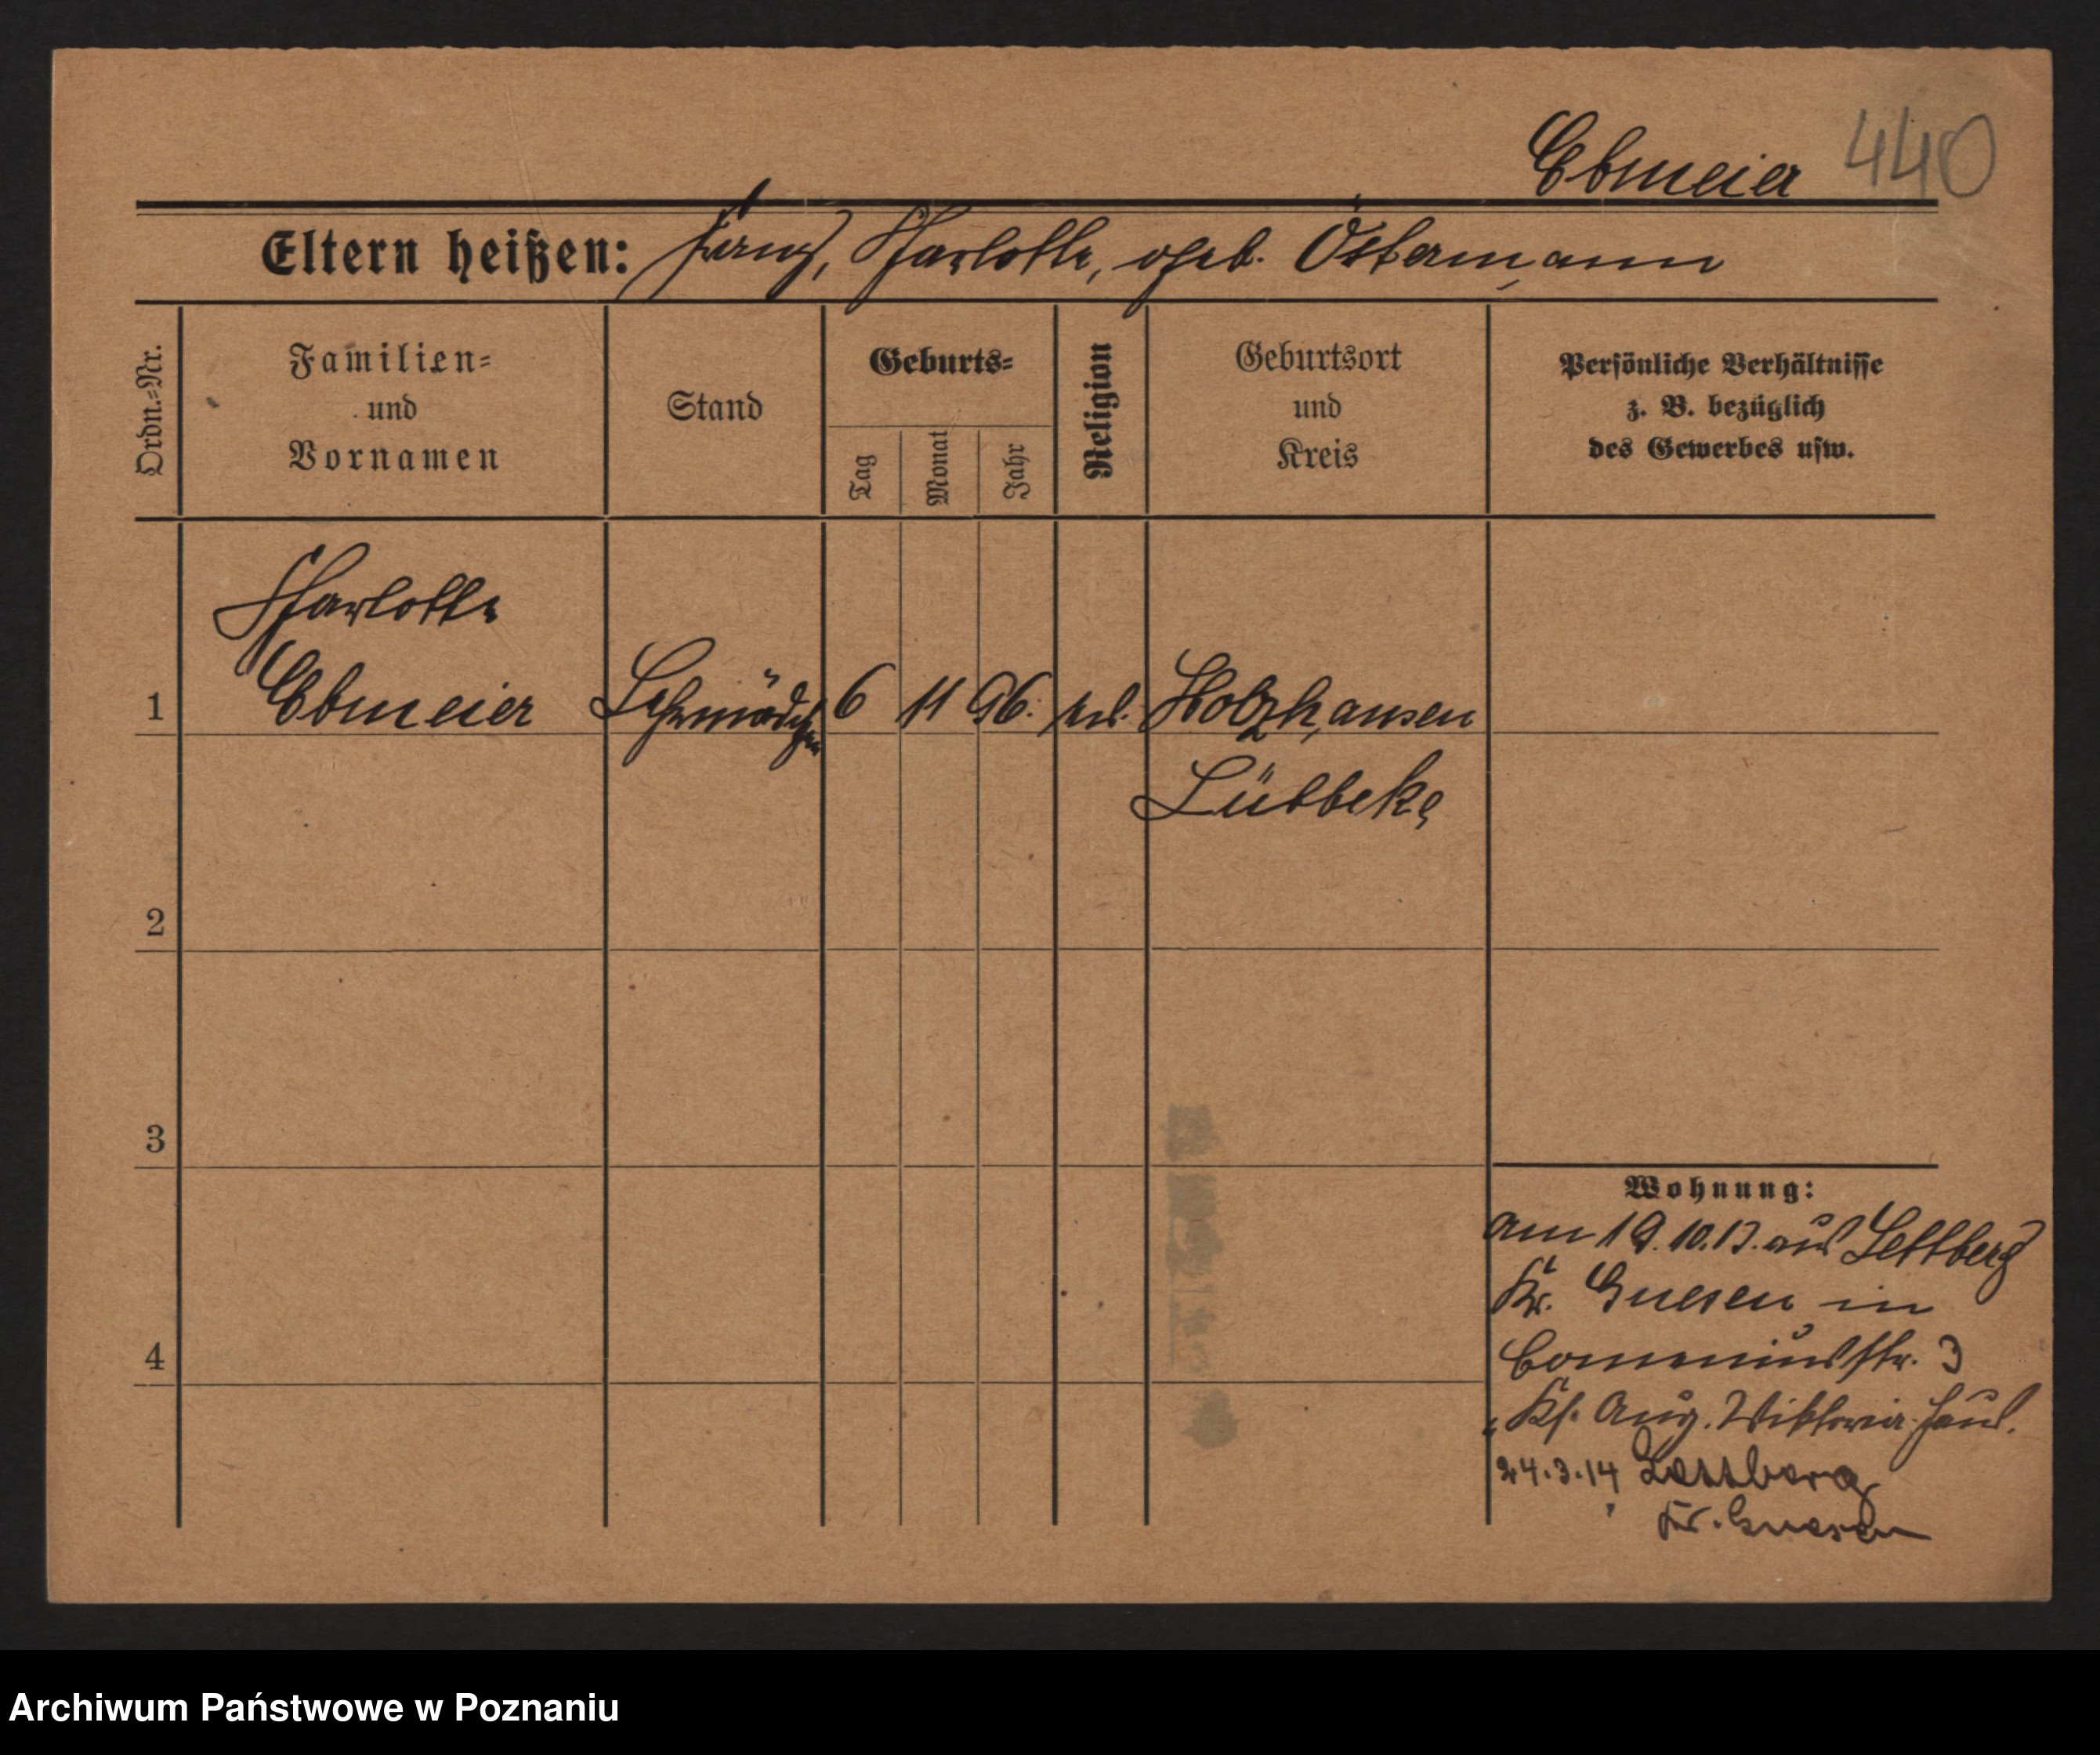 Ebmeier 440
Eltern heißen: Franz, Charlotte, geb. Ostermann
Ordn.-Nr.
Familien-
und
Vornamen
Stand
Geburts-
Tag
Monat
Jahr
Religion
Geburtsort
und
Kreis
Persönliche Verhältnisse
z. B. bezüglich
des Gewerbes usw.
Charlotte
1 Ebmeier Lehrmädchen 6 11 96. ev. Holzhausen
Lübbeke
2
3
4
Wohnung:
am 19.10.13. aus Lettberg
Kr. Gnesen in
Comeniusstr. 3
Ks. Aug. Viktoria-Haus.
24.3.14 Lettberg
Kr. Gnesen
Archiwum Państwowe w Poznaniu